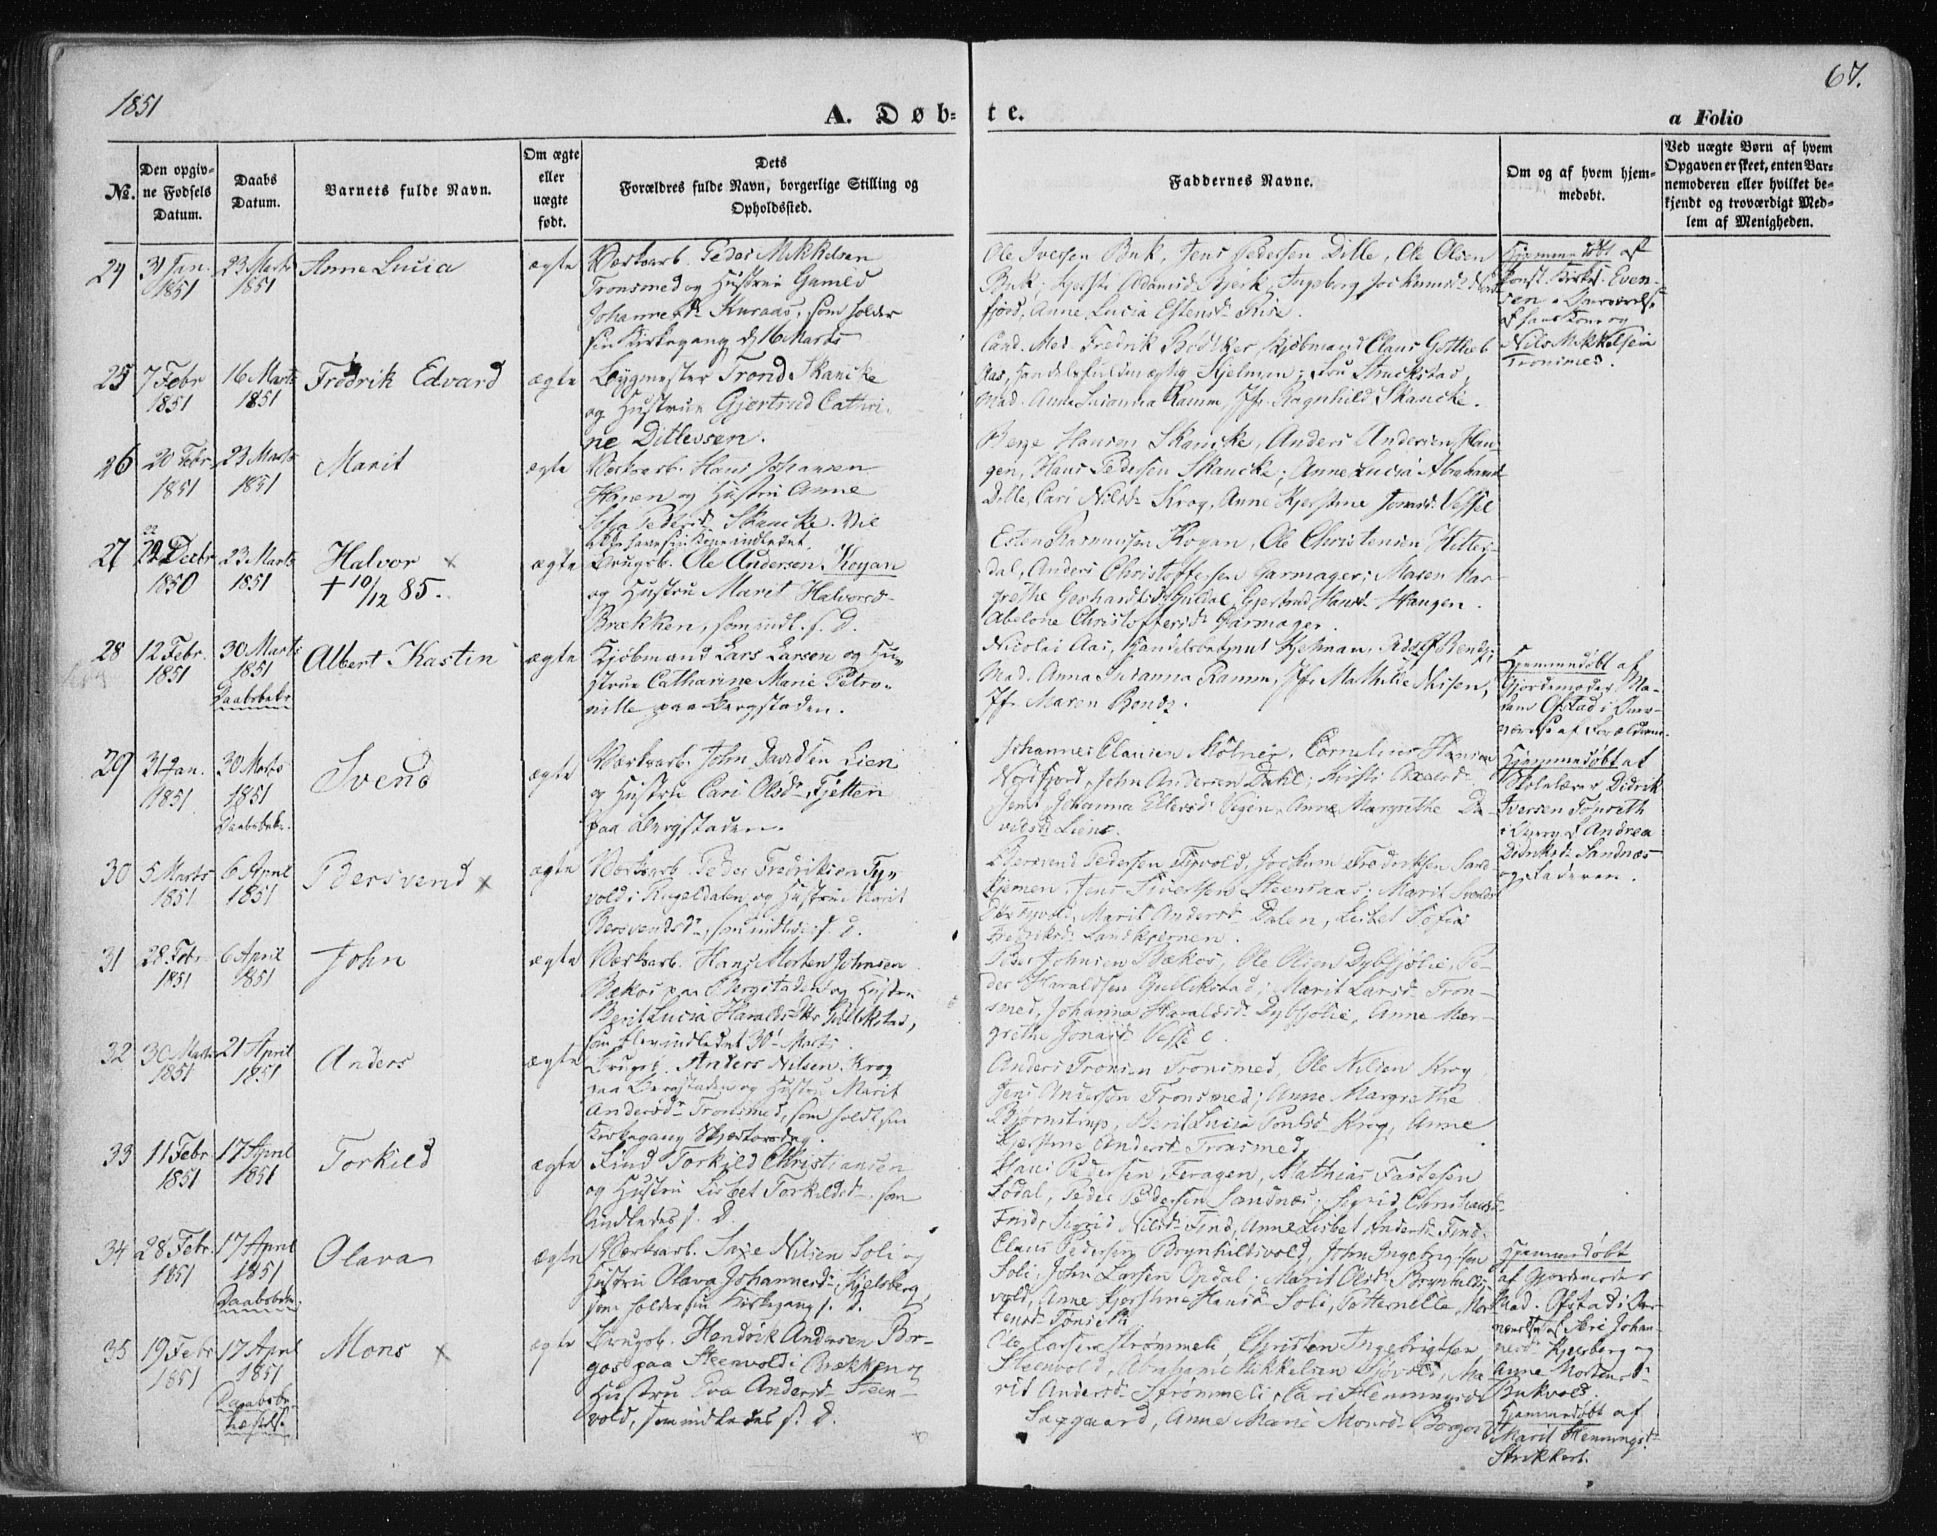 1851
67.
A. Døb-te.
a Folio
No.
Den opgiv-
ne Fødsels
Datum.
Daabs
Datum.
Barnets fulde Navn.
Om ægte
eller
uægte
født.
Dets
Forældres fulde Navn, borgerlige Stilling og
Opholdssted.
Faddernes Navne.
Om og af hvem hjem-
medøbt.
Ved uægte Børn af hvem
Opgaven er skeet, enten Bar-
nemoderen eller hvilket be-
kjendt og troværdigt Med-
lem af Menigheden.
24
31 Jan.
1851
23 Marts
1851
Anne Lucia
ægte
Værksarb. Peder Mikkelsen
Tronsmed og Hustrue
Johannesd. Kuraas, som holder
sin Kirkegang d. 16 Marts
Ole Iversen Buk, Jens Pedersen Dille, Ole Olsen
Buk; Ingeborg
fjord, Anne Lucia Estensd. Rise.
Hjemmedøbt af
Even-
sen i Overværelse
af hans Kone og
Nils Mikkelsen
Tronsmed.
25
7 Febr
1851
16 Marts
1851
Fredrik Edvard
ægte
Bygmester Trond Skancke
og Hustrue Gjertrud Cathri-
ne Ditlevsen.
Cand. Med. Fredrik Bødtker, Kjøbmand Claus Gottlieb
Aas, Handelsfuldmægtig Hjelman;
Mad. Anna Susanna Ramm, Jfr. Ragnhild Skancke.
26
20 Febr
1851
23 Marts
1851
Marit
ægte
Værksarb. Hans Johansen
og Hustru Anne
Sofia Pedersd. Skancke. Vil
Hansen Skancke, Anders Andersen Hau-
gen, Hans Pedersen Skancke; Anne Lucia Abrahamsd.
Dille, Cari Nilsd. Krog, Anne Kjerstine Jonasd. Vessel
27
22 Decbr
1850
23 Marts
1851
Halvor x
+ 10/12 85.
ægte
Brugsb. Ole Andersen Kojan
og Hustru Marit Halvorsd.
Brækken, som indl. s. D.
Esten Rasmussen Kojan, Ole Christensen Hitter-
dal, Anders Christoffersen Garmager; Maren Mar-
grethe Gerhardtsd. Guldal, Gjertrud Hansd. Haugen.
Abelone Christoffersd. Garmager.
28
12 Febr.
1851
30 Marts
1851
Daabsbekr.
Albert Kastin
ægte
Kjøbmand Lars Larsen og Hu-
strue Catharine Marie Petro-
nille paa Bergstaden.
Nicolai Aas, Hjelman,
Mad. Anna Susanna Ramm, Jfr. Mathilde Nisen,
Jfr. Maren
Hjemmedøbt af
Gjordemoder Ma-
dam Ofstad i Over-
værelse af Forældrene.
29
31 Jan.
1851
30 Marts
1851
Daabsbekr.
Svend
ægte
Værksarb. John Davidsen Lien
og Hustru Cari Olsd. Fjetten
paa Bergstaden.
Johannes Clausen Mølner, Cornelius Hansen
Nordfjord, John Andersen Dahl; Kirsti
Johanna Ellevsd. Anne Margrethe Da-
vidsd. Lien.
Hjemmedøbt af
Skolelærer Didrik
Iversen Tønseth
i Overv. af Andrea
Didriksd. Sandnæs
og Faderen.
30
5 Marts
1851
6 April
1851
Bersvend x
ægte
Værksarb. Peder Fredriksen Ty-
vold i Rugeldalen og Hustrue Marit
Bersvendsd., som indledes s. D.
Bersvend Pedersen Tyvold, Jochum Fredriksen Sand-
kjernen, Jens Sivertsen Steensaas; Marit Svendsd.
Tyvold, Marit Andersd. Dalen, Lisbet Sofia
Fredriksd. Sandkjernen.
31
28 Febr
1851
6 April
1851
John
ægte
Værksarb. Hans Morten Johnsen
Bækos paa Bergstaden og Hustru
Berit Lucia Haraldsdtr. Gullikstad,
som blev indledet 30 Marts.
Peder Johnsen Bækos, Ole Olsen Dybsjølie, Pe-
der Haraldsen Gullikstad; Marit Larsd. Tron-
smed, Johanna Haraldsd. Dybsjølie, Anne Mar-
grethe Jonasd. Vessel.
32
30 Marts
1851
21 April
1851
Anders
ægte
Anders Nilsen Krog
paa Bergstaden og Hustru Marit
Andersd. Tronsmed, som holdt sin
Kirkegang Skjærtorsdag.
Anders Tronsen Tronsmed, Ole Nilsen Krog
Jens Andersen Tronsmed; Anne Margrethe
Bjørnstrup, Berit Lucia Povlsd. Krog, Anne
Kjerstine Andersd. Tronsmed.
33
11 Febr
1851
17 April
1851
Torkild
ægte
Find Torkild Christiansen
og Hustru Lisbet Torkildsd., som
indledes s. D.
Hans Pedersen Feragen, Mathias Fastesen
Sødal, Peder Pedersen Sandnæs; Sigrid Christiansd.
Find, Sigrid Nilsd. Find, Anne Lisbet Andersd. Find.
34
28 Febr.
1851
17 April
1851
Daabsbekr.
Olava
ægte
Værksarb. Saxe Nilsen Soli og
Hustru Olava Johannesd. Kjelsberg,
som holder sin Kirkegang s. D.
Claus Pedersen Brynhildsvold, John Ingebrigtsen
Soli, John Larsen Opdal; Marit Olsd. Brynhilds-
vold, Anne Kjerstine Hansd. Soli, Petternelle Mor-
tensd. Tønseth
Hjemmedøbt
af Gjordemoder
Mad. Ofstad i Over-
værelse af Seri Johan-
nesd. Kjelsberg og
Anne Mortensd.
Bukvold.
35
19 Febr
1851
17 April
1851
Daabsbe-
kræftelse
Mons x
ægte
Brugsb. Hendrik Andersen Bor-
gos paa Steenvold i Brækken og
Hustru Eva Andersd. Steen-
vold, som indledes s. D.
Ole Larsen Strømmeli, Christen Ingebrigtsen
Steenvold, Abraham Mikkelsen Sjøvold, Ma-
rit Andersd. Strømmeli, Cari Henningsd.
Saxgaard, Anne Marie Monsd. Borgos
Hjemmedøbt af
Marit Henningsd.